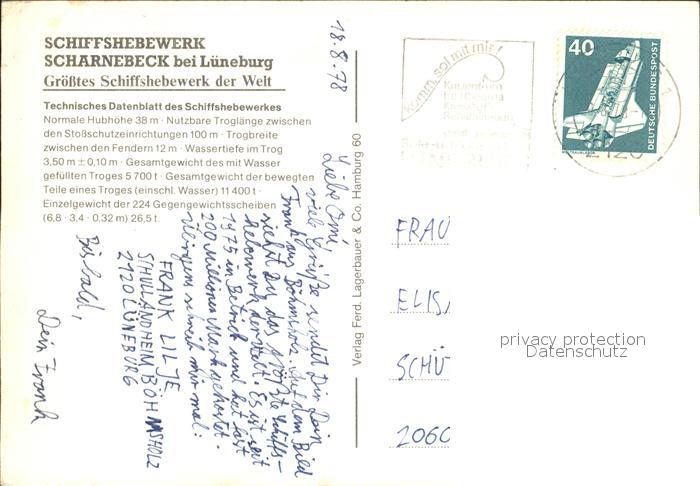 SCHIFFSHEBEWERK
SCHARNEBECK bei Lüneburg
Größtes Schiffshebewerk der Welt
Technisches Datenblatt des Schiffshebewerkes
Normale Hubhöhe 38 m · Nutzbare Troglänge zwischen
den Stoßschutzeinrichtungen 100 m · Trogbreite
zwischen den Fendern 12 m · Wassertiefe im Trog
3,50 m ± 0,10 m · Gesamtgewicht des mit Wasser
gefüllten Troges 5 700 t · Gesamtgewicht der bewegten
Teile eines Troges (einschl. Wasser) 11 400 t ·
Einzelgewicht der 224 Gegengewichtsscheiben
(6,8 · 3,4 · 0,32 m) 26,5 t.
18.8.78
Liebe Omi,
viele Grüße sendet Dir Dein
Frank aus Böhmsholz. Auf dem Bild
siehst Du das größte Schiffs-
hebewerk der Welt. Es ist seit
1975 in Betrieb und hat fast
200 Millionen Mark gekostet.
Übrigens schreib mir mal:
FRANK LILJE
SCHULLANDHEIM BÖHMSHOLZ
2120 LÜNEBURG
Bis bald,
Dein Frank
Verlag Ferd. Lagerbauer & Co. Hamburg 60
Komm, sol mit mir!
Kurzentrum
40
DEUTSCHE BUNDESPOST
WELTRAUMLABOR
2120
FRAU
ELIS
SCHÜ
2060
privacy protection
Datenschutz